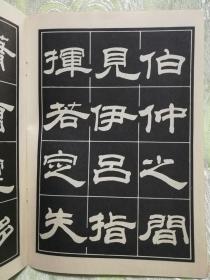 伯仲之間
見伊呂指
揮若定失